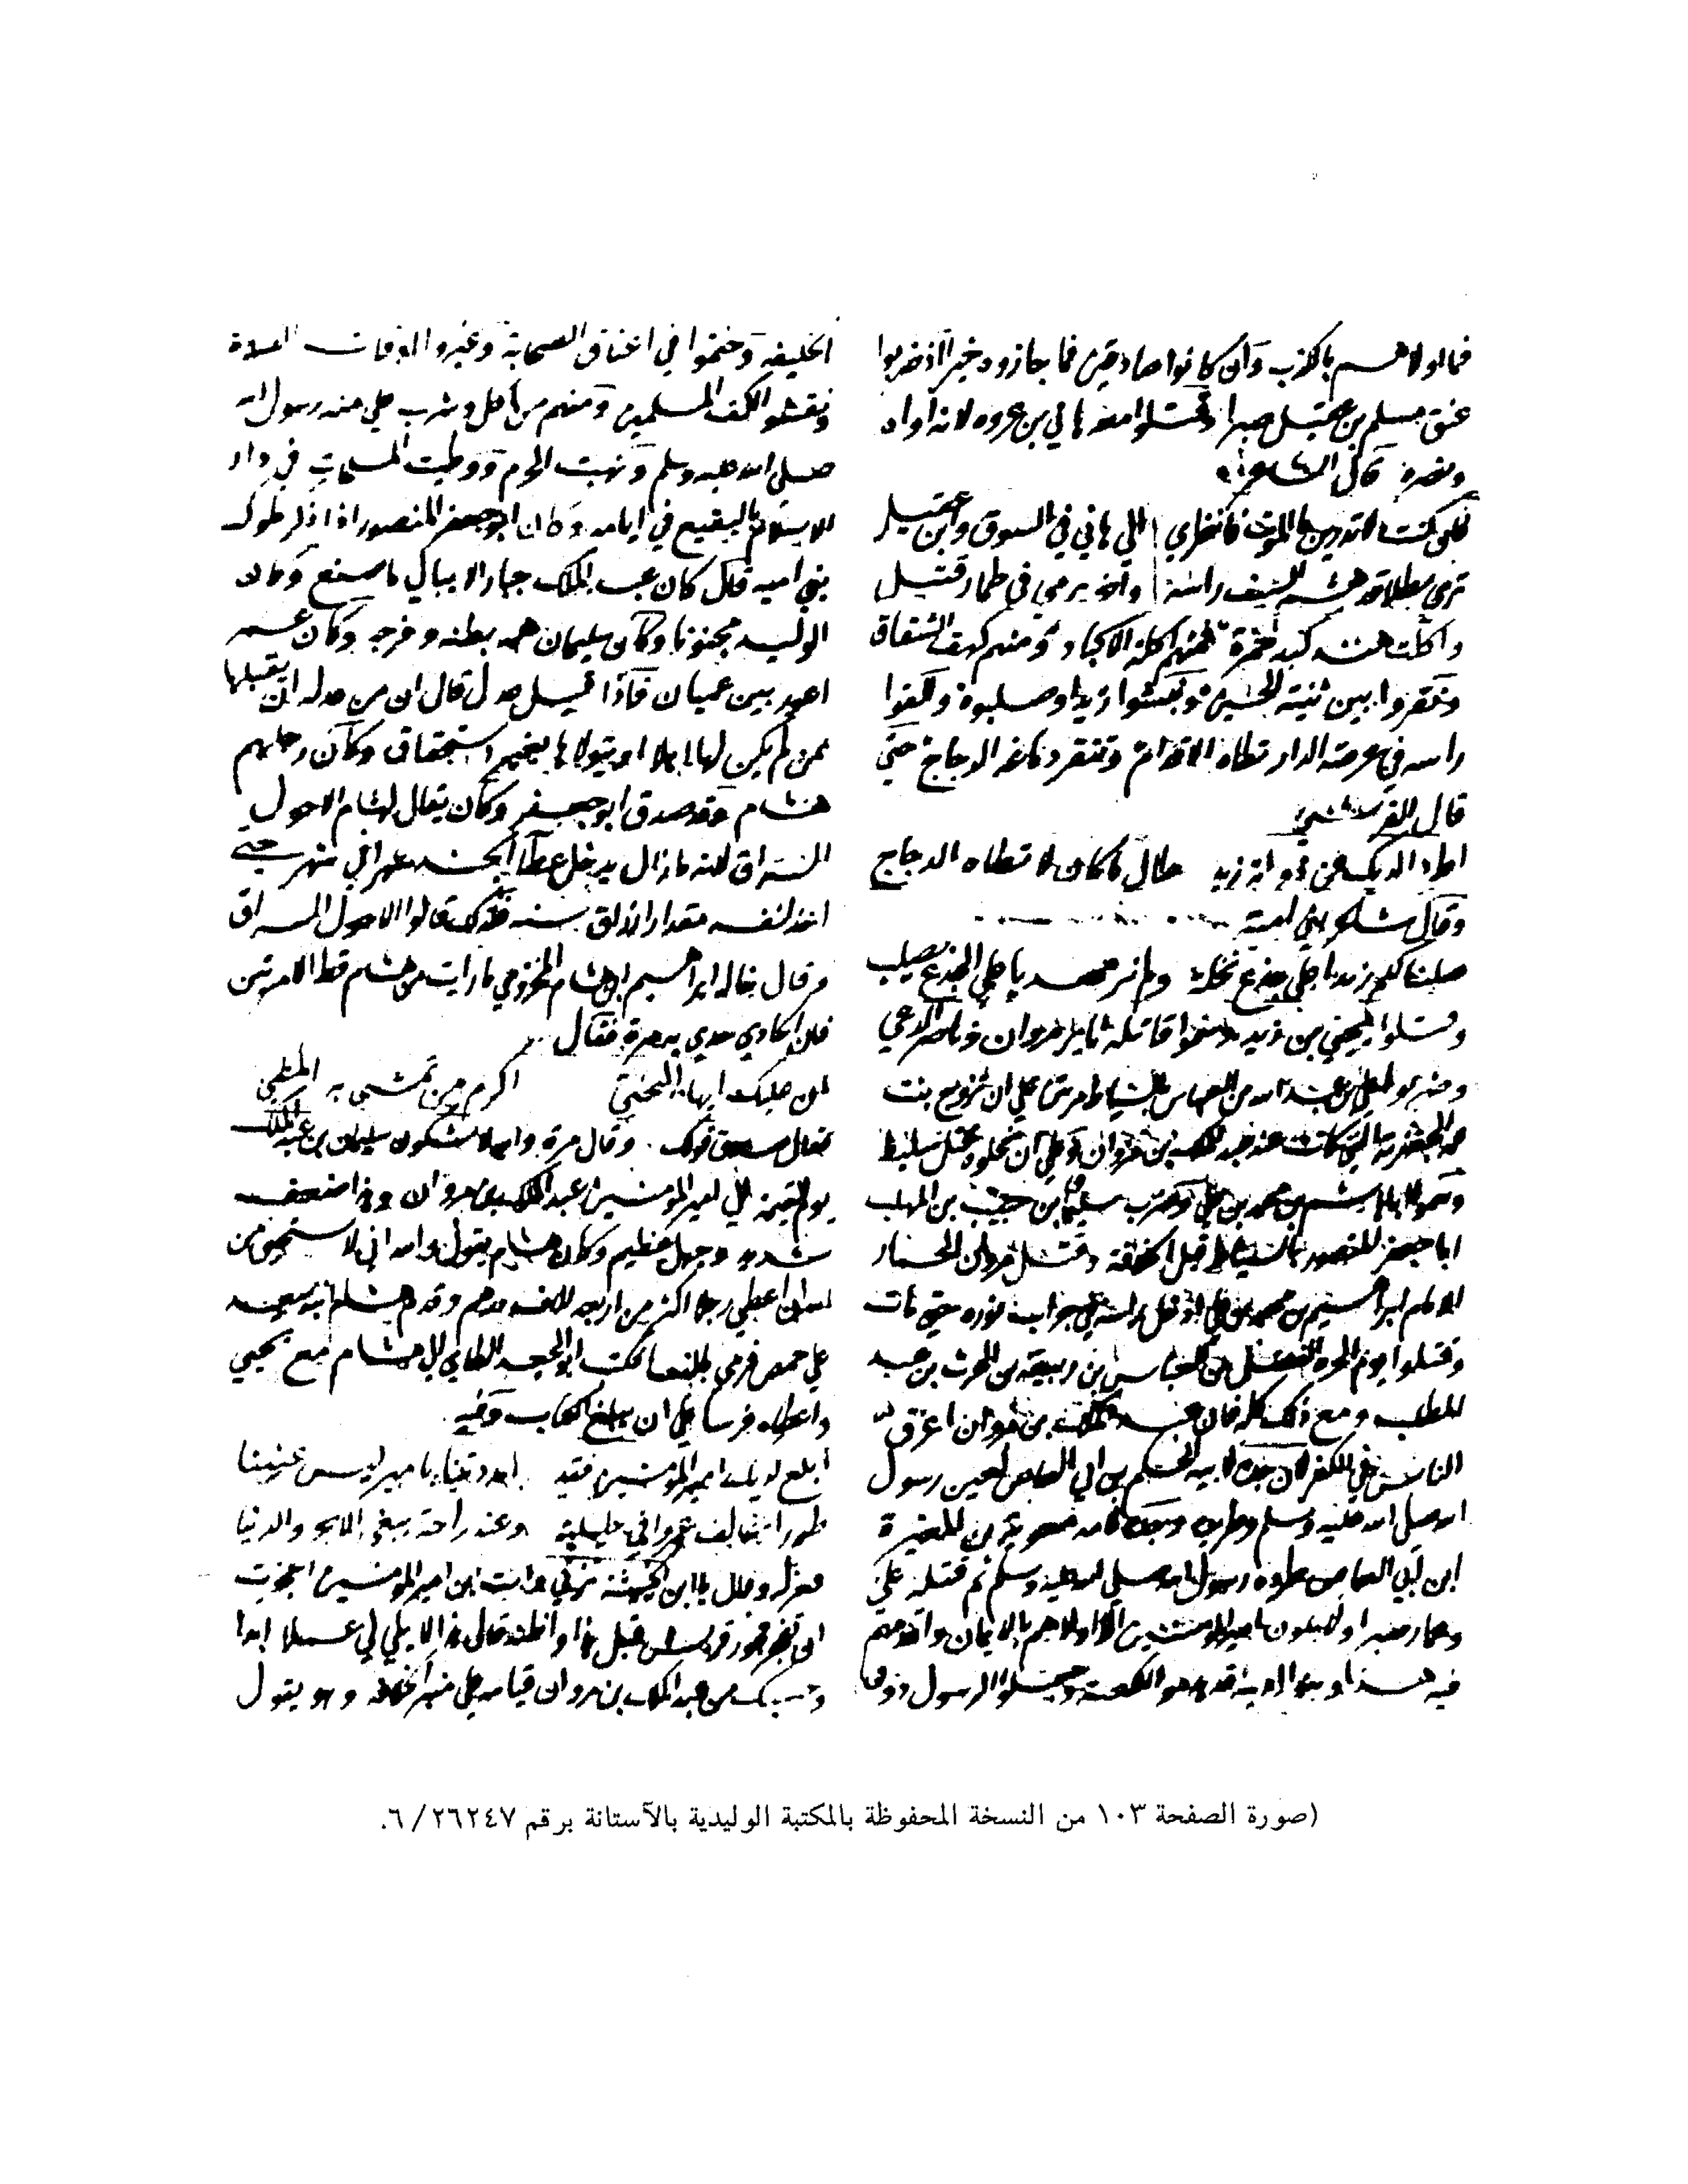 عنق مسلم بن عقيل صبرا وقتلوا معه هاني بن عروه لانه اواه
ونصره قال الشاعر
فان كنت لا تدرين ما الموت فانظري الي هاني في السوق وابن عقيل
تري بطلا قد هشم السيف راسه واخر يرمي في طمار قتيل
واكلت هند كبد حمزة فمنهم اكلة الاكباد ومنهم كهف النفاق
ونقروا بين ثنيتي الحسين ونبشوا زيدا وصلبوه والقوا
راسه في عرصة الدار تطاه الاقدام وتنقر دماغه الدجاج حتي
قال القرشي
اطرد الديك عن ذوابة زيد طال ما كان لا تطاه الدجاج
وقال شاعر بني امية
صلبنا لكم زيدا علي جذع نخلة ولم نر مهديا علي الجذع يصلب
وقتلوا يحيي بن زيد وسموا قاتله ثاير مروان وناصر الدين
وضربوا علي بن عبد الله بن العباس بالسياط مرتين علي ان تزوج بنت
عمه الجعفرية التي كانت عند عبد الملك بن مروان وعلي ان نحلوه قتل سليط
وسموا ابا هاشم بن محمد بن علي وضرب سليمان بن حبيب بن المهلب
ابا جعفر المنصور بالسياط قبل الخلافة وقتل مروان الحمار
الامام ابراهيم بن محمد بن علي ادخل راسه في جراب نوره حتي مات
وقتلوا يوم الحره الفضل بن العباس بن ربيعة بن الحرث بن عبد
المطلب ومع ذلك كله فان عبد الملك بن مروان اعرق
الناس في الكفر لان جده لابيه الحكم بن ابي العاص لعين رسول
الله صلي الله عليه وسلم وطريده وجده لامه معوية بن المغيرة
ابن ابي العاص طرده رسول الله صلي الله عليه وسلم ثم قتله علي
وعمار صبرا ولا يكون امير المومنين الا اولاهم بالايمان واقدمهم
فيه هذا وبنو امية قد هدموا الكعبة وجعلوا الرسول دون
الخليفه وختموا في اعناق الصحابة وغيروا اوقات الصلاة
ونقشوا اكف المسلمين ومنهم من اكل وشرب علي منبر رسول الله
صلي الله عليه وسلم ونهبت الحرم ووطيت المسلمات في دار
الاسلام بالبقيع في ايامه وكان ابو جعفر المنصور اذا ذكر ملوك
بني اميه قال كان عبد الملك جبارا لا يبالي ما صنع وكان
الوليد مجنونا وكان سليمان همه بطنه وفرجه وكان عمر
اعور بين عميان فاذا قيل عدل قال ان من عدله ان يقبلها
ممن لم يكن لها اهلا او يتولاها بغير استحقاق وكان رجلهم
هشام وقد صدق ابو جعفر وكان يقال لهشام الاحول
السراق لانه ما زال يدخل عطا الجند شهرا في شهر حتي
اخذ لنفسه مقدار الارزاق سنه فلذلك قالوا الاحول السراق
وقال خاله ابراهيم بن هشام المخزومي ما رايت من هشام قط الا مرتين
فان الحادي حدي به مرة فقال
ان عليك ايها البختي اكرم من تمشي به المطي
فقال صدق قولك وقال مرة والله لاشكون سليمان بن عبد الملك
يوم القيمة الي امير المومنين عبد الملك بن مروان وهذا ضعف
شديد وجهل عظيم وكان هشام يقول والله اني لاستحيي من
الله ان اعطي رجلا اكثر من اربعه الاف درهم وقدم هشام ابنه سعيد
علي حمص فرمي بالنسا فكتب ابو الجعد الطاي الي هشام مع يحيي
واعطاه فرسا علي ان يبلغ الكتاب وفيه
ابلغ لديك امير المومنين فقد امددتنا بامير ليس عنينا
طورا يخالف عمرا في حليلته وعند راحة يبغي الاجر والدينا
فعزله وقال يا ابن الخبيثة تزني وانت ابن امير المومنين اعجزت
ان تفجر فجور قريش قبل هذا واظنه قال هذا لا يلي لي عملا ابدا
وحسبك من عبد الملك بن مروان قيامه علي منبر الخلافه وهو يقول
(صورة الصفحة ١٠٣ من النسخة المحفوظة بالمكتبة الوليدية بالآستانة برقم ٢٦٢٤٧ /٦.